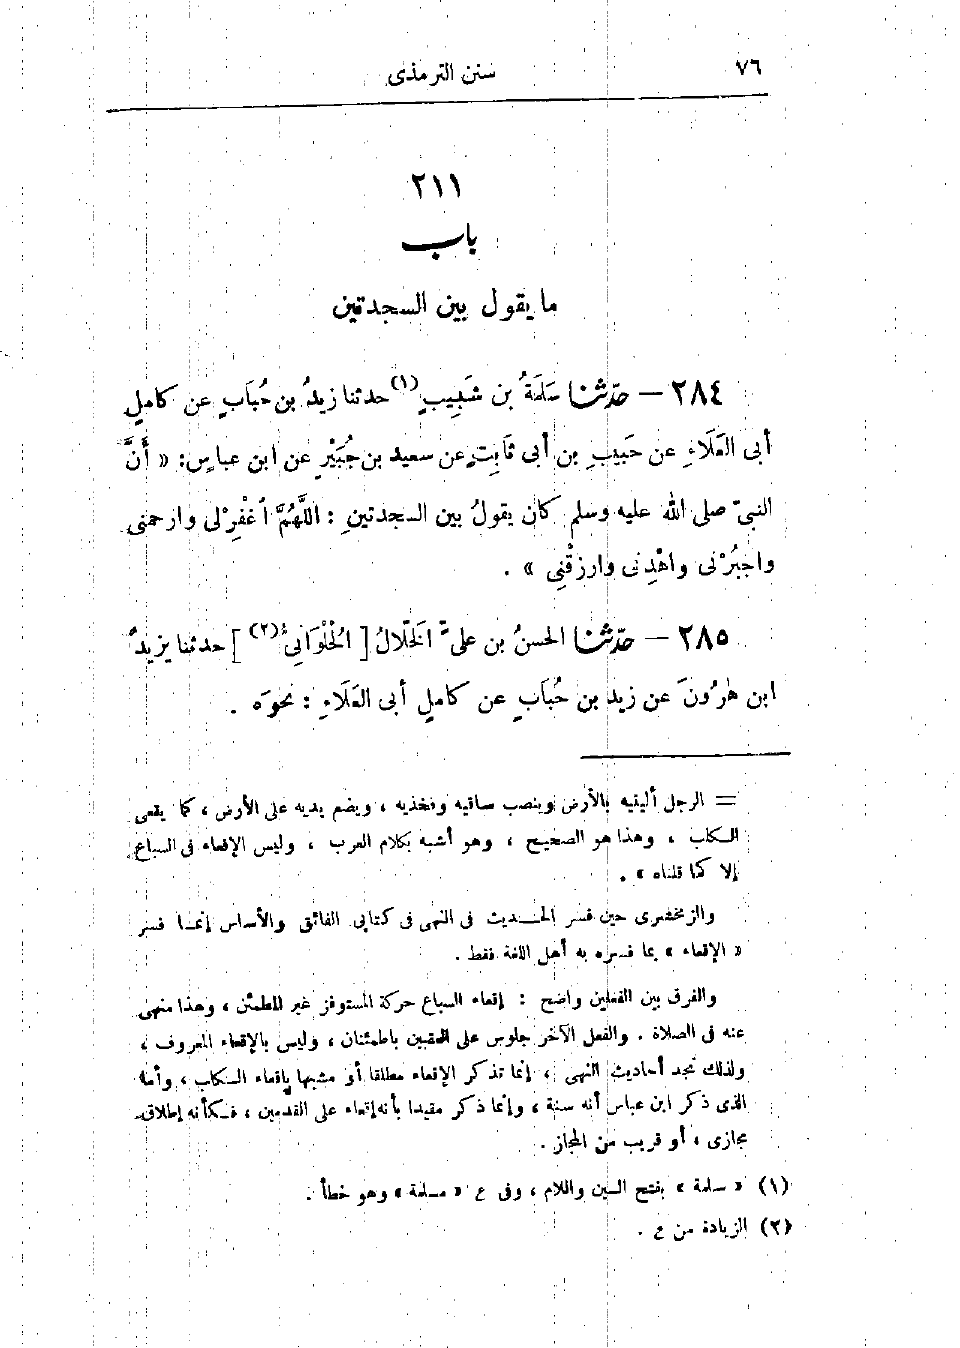 ٧٦
سنن الترمذى
٢١١
باب
ما يقول بين السجدتين
٢٨٤ — حدّثنا سَلَمَةُ بن شَبِيبٍ(١) حدثنا زيدُ بن حُبَابٍ عن كاملٍ
أبى العَلَاءِ عن حَبيبِ بن أبى ثَابِتٍ عن سعيد بن جُبَيْرٍ عن ابن عباسٍ: « أَنَّ
النبىّ صلى الله عليه وسلم كان يقولُ بين السجدتينِ : اللَّهُمَّ ٱغْفِرْلى وارحمنى
واجبُرْنى واهْدِنى وارزقْنِى » .
٢٨٥ — حدّثنا الحسنُ بن علىّ الَخلّالُ [ الْحُلْوَانِىُّ(٢) ] حدثنا يزيدُ
ابن هٰرُونَ عن زيد بن حُبَابٍ عن كاملٍ أبى العَلَاءِ : نحوَه .
= الرجل أليتيه بالأرض وينصب ساقيه وفخذيه ، ويضع يديه على الأرض ، كما يقعى
الكلب ، وهذا هو الصحيح ، وهو أشبه بكلام العرب ، وليس الإقعاء فى السباع
إلا كما قلناه » .
والزمخشرى حين فسر الحديث فى النهى فى كتابى الفائق والأساس إنما فسر
« الإقعاء » بما فسره به أهل اللغة فقط .
والفرق بين الفعلين واضح : إقعاء السباع حركة المستوفز غير المطمئن ، وهذا منهى
عنه فى الصلاة . والفعل الآخر جلوس على العقبين باطمئنان ، وليس بالإقعاء المعروف ،
ولذلك نجد أحاديث النهى ، إنما تذكر الإقعاء مطلقا أو مشبها بإقعاء الكلب ، وأما
الذى ذكر ابن عباس أنه سنة ، وإنما ذكر مقيدا بأنه إقعاء على القدمين ، فكأنه إطلاق
مجازى ، أو قريب من المجاز .
(١) « سلمة » بفتح السين واللام ، وفى ع « مسلمة » وهو خطأ .
(٢) الزيادة من ع .